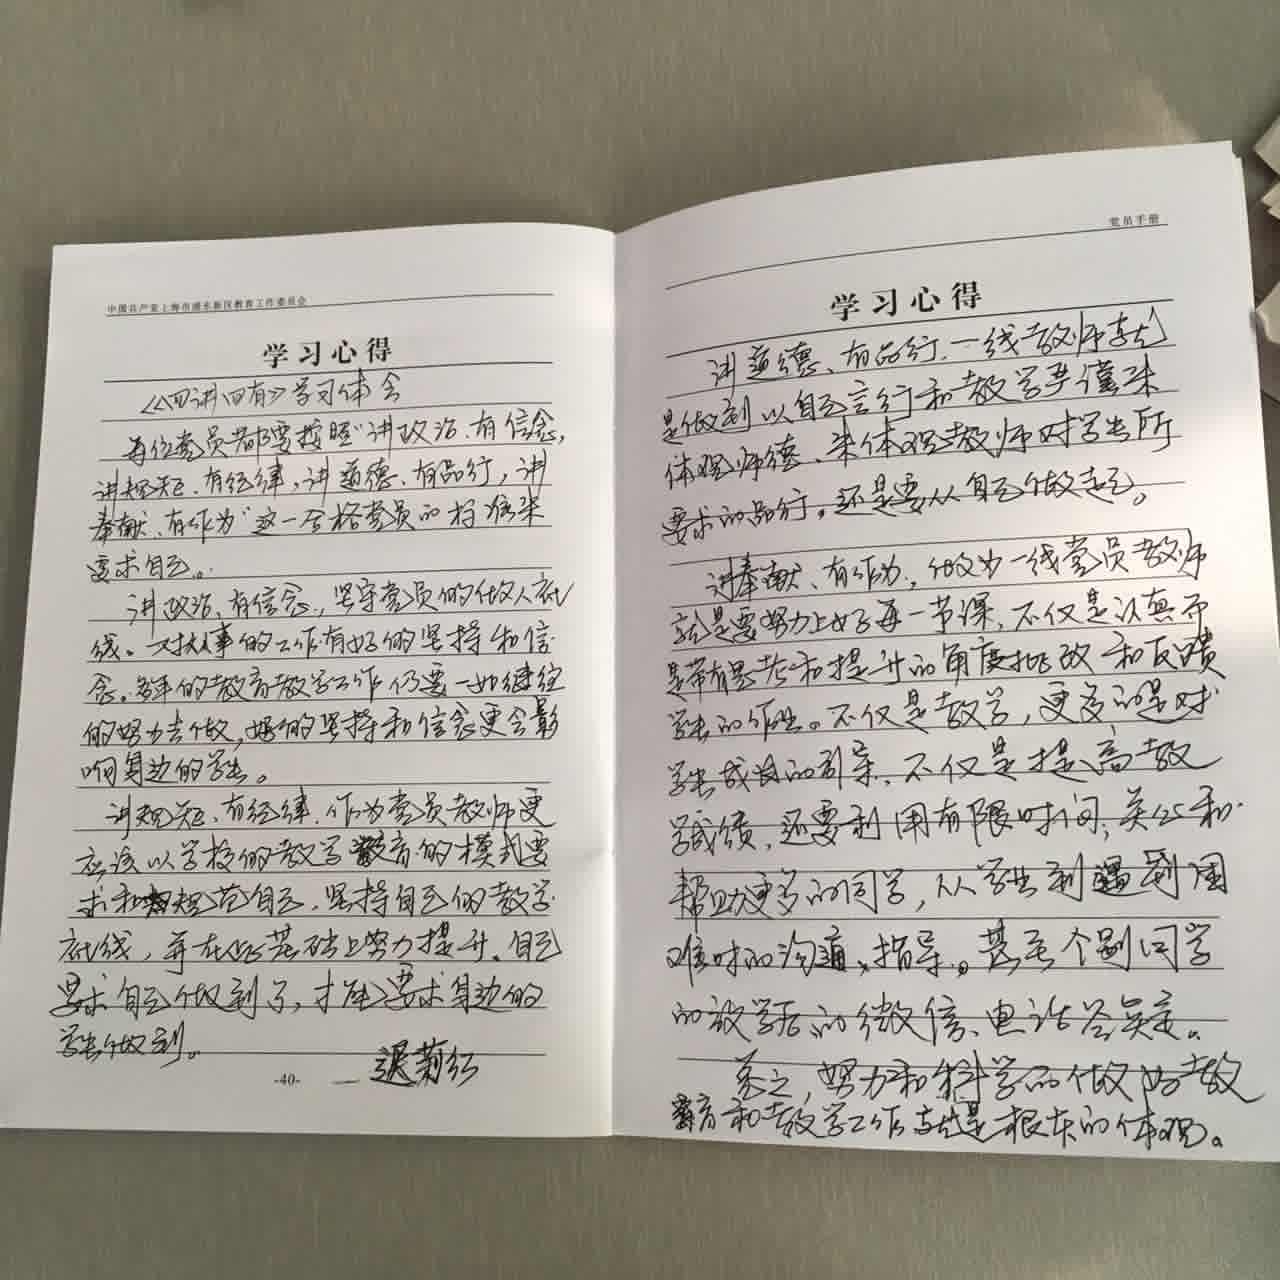 中国共产党上海市浦东新区教育工作委员会
学习心得
《四讲四有》学习体会
每位党员都要按照“讲政治、有信念,
讲规矩、有纪律,讲道德、有品行,讲
奉献、有作为”这一合格党员的标准来
要求自己。
讲政治、有信念,坚守党员的做人底
线。对从事的工作有好的坚持和信
念。多年的教育教学工作仍要一如继往
的努力去做,好的坚持和信念更会影
响身边的学生。
讲规矩、有纪律,作为党员教师更
应该以学校的教学教育的模式要
求和规范自己,坚持自己的教学
底线,并在此基础上努力提升。自己
要求自己做到了,才能要求身边的
学生做到。
-40-
党员手册
学习心得
讲道德、有品行,一线教师就
是做到以自己言行和教学严谨来
体现师德、来体现教师对学生所
要求的品行。还是要从自己做起。
讲奉献、有作为,做为一线党员教师
就是要努力上好每一节课,不仅是认真而
是带有思考和提升的角度批改和反馈
学生的作业。不仅是教学,更多的是对
学生成长的引导,不仅是提高教
学成绩,还要利用有限时间,关心和
帮助更多的同学,从学生到遇到困
难时的沟通、指导。甚至个别同学
的放学后的微信、电话答疑。
总之,努力和科学的做好教
育和教学工作就是根本的体现。